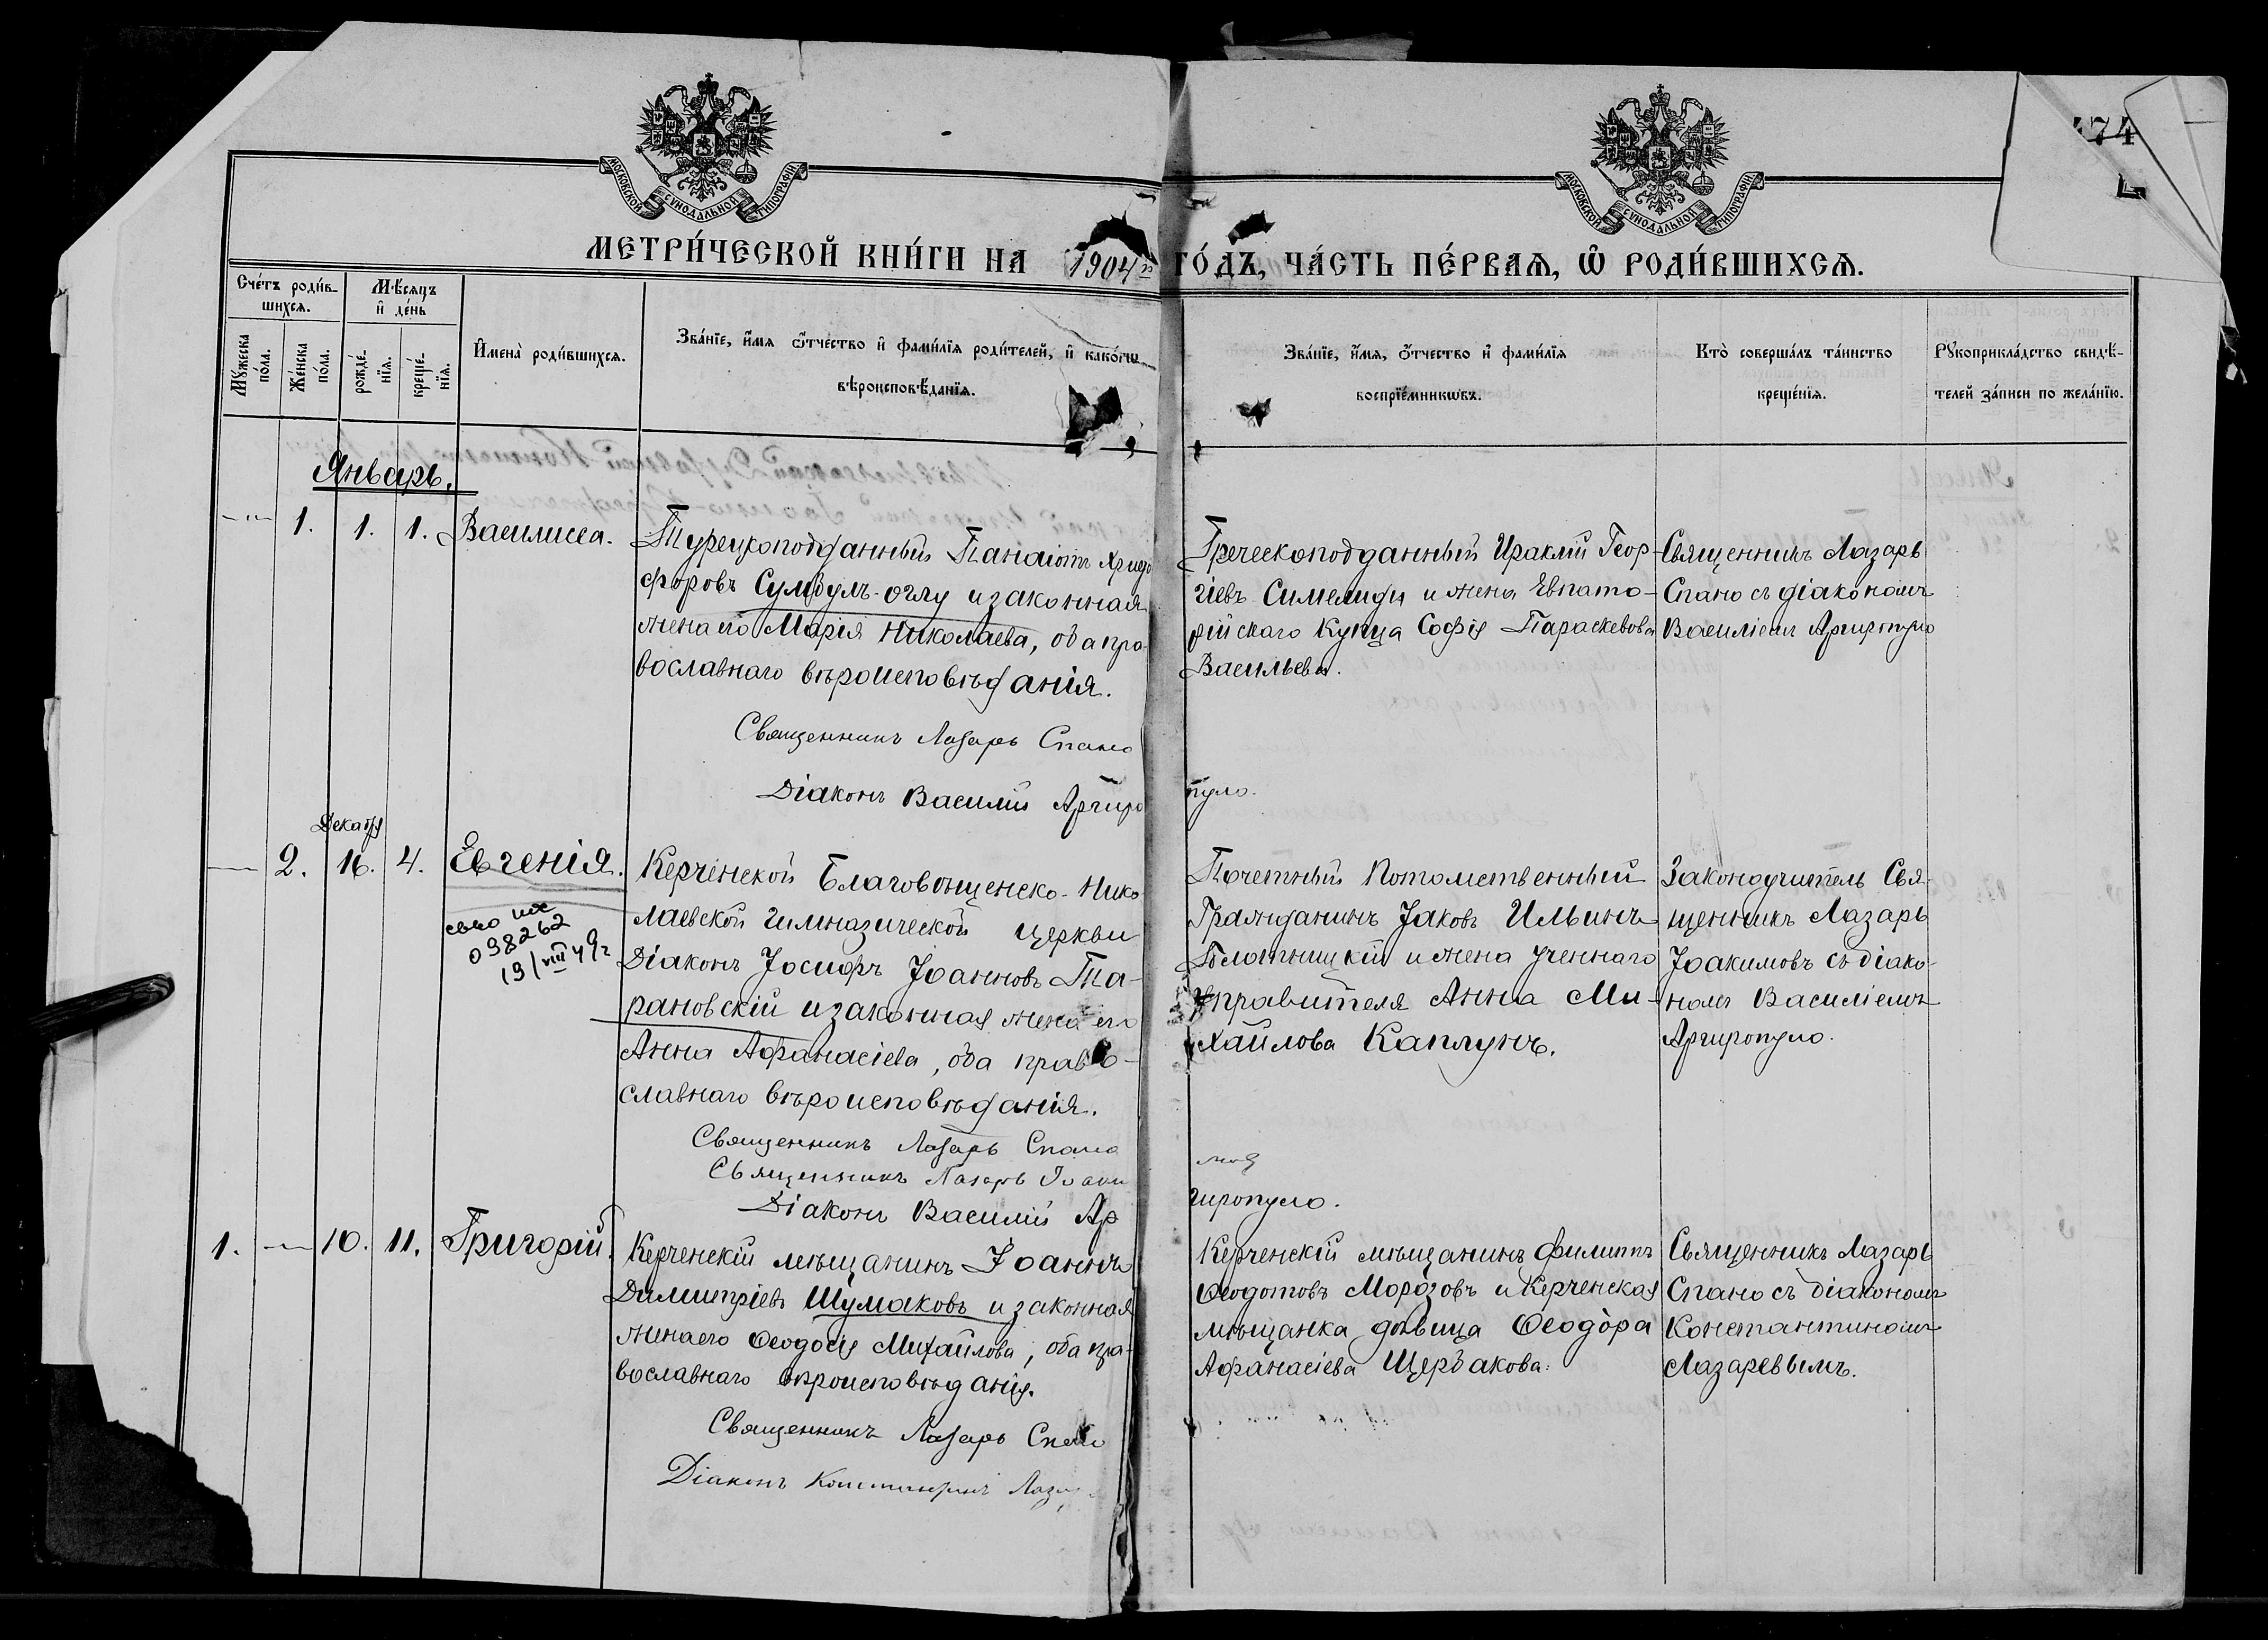 МОСКОВСКОЙ СѴНОДАЛЬНОЙ ТИПОГРАФІИ
МОСКОВСКОЙ СѴНОДАЛЬНОЙ ТИПОГРАФІИ
74
МЕТРИ́ЧЕСКОЙ КНИ́ГИ НА 1904 ГО́ДЪ, ЧА́СТЬ ПЕ́РВАѦ, Ѡ҆ РОДИ́ВШИХСѦ.
Сче́тъ роди́в-
шихсѧ.
Мѣ́сяцъ
и҆ де́нь
Мꙋ́жеска
по́ла.
Же́нска
по́ла.
рожде́-
нїѧ.
креще́-
нїѧ.
И҆мена̀ роди́вшихсѧ.
Зва́нїе, и҆́мѧ ѻ҆́тчество и҆ фами́лїѧ роди́телей, и҆ како́гѡ
вѣроисповѣ́данїѧ.
Зва́нїе, и҆́мѧ, ѻ҆́тчество и҆ фами́лїѧ
воспрїе́мникѡвъ.
Кто̀ соверша́лъ та́инство
креще́нїѧ.
Рꙋкоприкла́дство свидѣ́-
телей за́писи по жела́нїю.
Январь.
1. 1. 1. Василисса.
Турецкоподданный Панаіотъ Христо
форовъ Сумбулъ-оглу и законная
жена его Марія Николаева, оба пра-
вославнаго вѣроисповѣданія.
Священникъ Лазарь Спано
Діаконъ Василій Аргиро
пуло.
Греческоподданный Ираклій Геор-
гіевъ Симелиди и жена Евпато-
рійскаго Купца Софія Параскевова
Васильева.
Священникъ Лазарь
Спано съ діакономъ
Василіемъ Аргиропуло
Декабря
2. 16. 4. Евгенія.
098262
19/VIII 49г
Керченской Благовѣщенско-Нико
лаевской гимназической церкви
Діаконъ Іосифъ Іоанновъ Та-
рановскій и законная жена его
Анна Афанасіева, оба право-
славнаго вѣроисповѣданія.
Священникъ Лазарь Спано
Священникъ Лазарь Іоаки
мовъ
Діаконъ Василій Ар
гиропуло.
Почетный Потомственный
Гражданинъ Іаковъ Ильинъ
Болотницкій и жена Ученнаго
Управителя Анна Ми-
хайлова Каплунъ.
Законоучитель Свя-
щенникъ Лазарь
Іоакимовъ съ діако-
номъ Василіемъ
Аргиропуло.
1. 10. 11. Григорій.
Керченскій мѣщанинъ Іоаннъ
Димитріевъ Шумаковъ и законная
жена его Ѳеодосія Михайлова, оба пра-
вославнаго вѣроисповѣданія.
Священникъ Лазарь Спано
Діаконъ Константинъ Лазар
Керченскій мѣщанинъ Филиппъ
Ѳеодотовъ Морозовъ и Керченская
мѣщанка дѣвица Ѳеодора
Афанасіева Щербакова.
Священникъ Лазарь
Спано съ діакономъ
Константиномъ
Лазаревымъ.